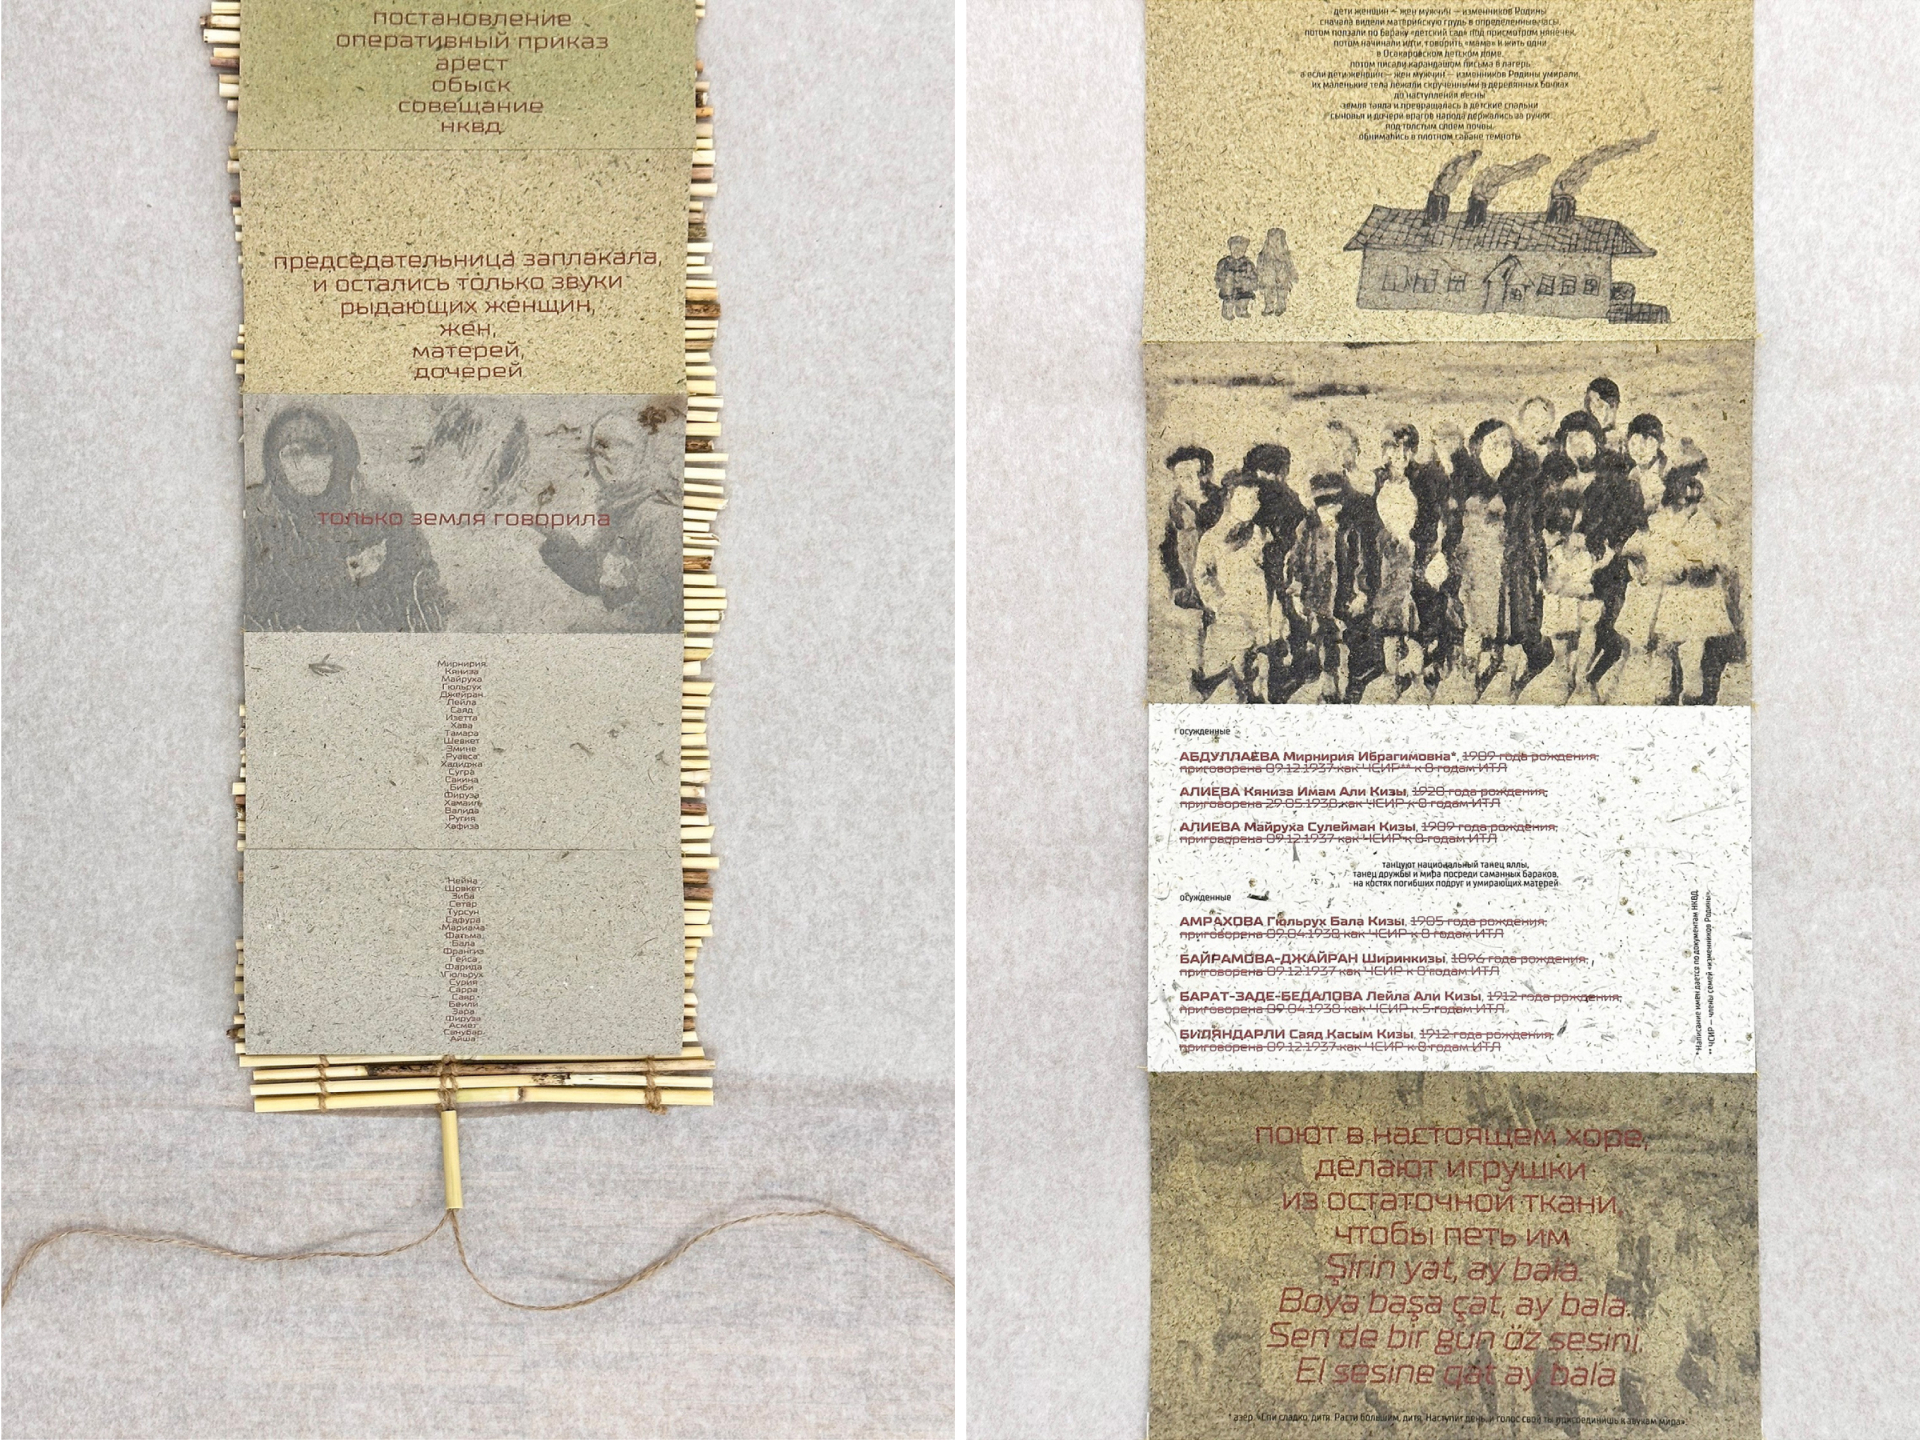 постановление
оперативный приказ
арест
обыск
совещание
нквд
председательница заплакала,
и остались только звуки
рыдающих женщин,
жен,
матерей,
дочерей
только земля говорила
Мирнирия
Кяниза
Майруха
Гюльрух
Джейран
Лейла
Саяд
Изетта
Хава
Тамара
Шевкет
Эмине
Руавса
Хадиджа
Сугра
Сакина
Биби
Фируза
Хамаил
Валида
Ругия
Хафиза
Нейна
Шовкет
Зиба
Сетар
Турсун
Сафура
Мариама
Фатьма
Бала
Франгиз
Гейса
Фарида
Гюльрух
Сурия
Сарра
Саяр
Беюли
Зара
Фируза
Асмет
Санубар
Айша
дети женщин — жен мужчин — изменников Родины
сначала видели материнскую грудь в определенные часы,
потом ползали по бараку «детский сад» под присмотром нянечек,
потом начинали идти, говорить «мама» и жить одни
в Осакаровском детском доме,
потом писали карандашом письма в лагерь,
а если дети женщин — жен мужчин — изменников Родины умирали,
их маленькие тела лежали скрученными в деревянных бочках
до наступления весны
земля таяла и превращалась в детские спальни
сыновья и дочери врагов народа держались за ручки
под толстым слоем почвы,
обнимались в плотном саване темноты
осужденные
АБДУЛЛАЕВА Мирнирия Ибрагимовна*, 1909 года рождения,
приговорена 09.12.1937 как ЧСИР** к 8 годам ИТЛ
АЛИЕВА Кяниза Имам Али Кизы, 1920 года рождения,
приговорена 29.05.1938 как ЧСИР к 8 годам ИТЛ
АЛИЕВА Майруха Сулейман Кизы, 1909 года рождения,
приговорена 09.12.1937 как ЧСИР к 8 годам ИТЛ
танцуют национальный танец яллы,
танец дружбы и мира посреди саманных бараков,
на костях погибших подруг и умирающих матерей
осужденные
АМРАХОВА Гюльрух Бала Кизы, 1905 года рождения,
приговорена 09.04.1938 как ЧСИР к 8 годам ИТЛ
БАЙРАМОВА-ДЖАЙРАН Ширинкизы, 1896 года рождения,
приговорена 09.12.1937 как ЧСИР к 8 годам ИТЛ
БАРАТ-ЗАДЕ-БЕДАЛОВА Лейла Али Кизы, 1912 года рождения,
приговорена 09.04.1938 как ЧСИР к 5 годам ИТЛ
БИЛЯНДАРЛИ Саяд Касым Кизы, 1912 года рождения,
приговорена 09.12.1937 как ЧСИР к 8 годам ИТЛ
* Написание имен дается по документам НКВД
** ЧСИР — члены семей «изменников Родины»
поют в настоящем хоре,
делают игрушки
из остаточной ткани,
чтобы петь им
Şirin yat, ay bala.
Boya başa çat, ay bala.
Sen de bir gün öz sesini,
El sesine qat ay bala
* азер. «Спи сладко, дитя. Расти большим, дитя. Наступит день, и голос свой ты присоединишь к звукам мира».